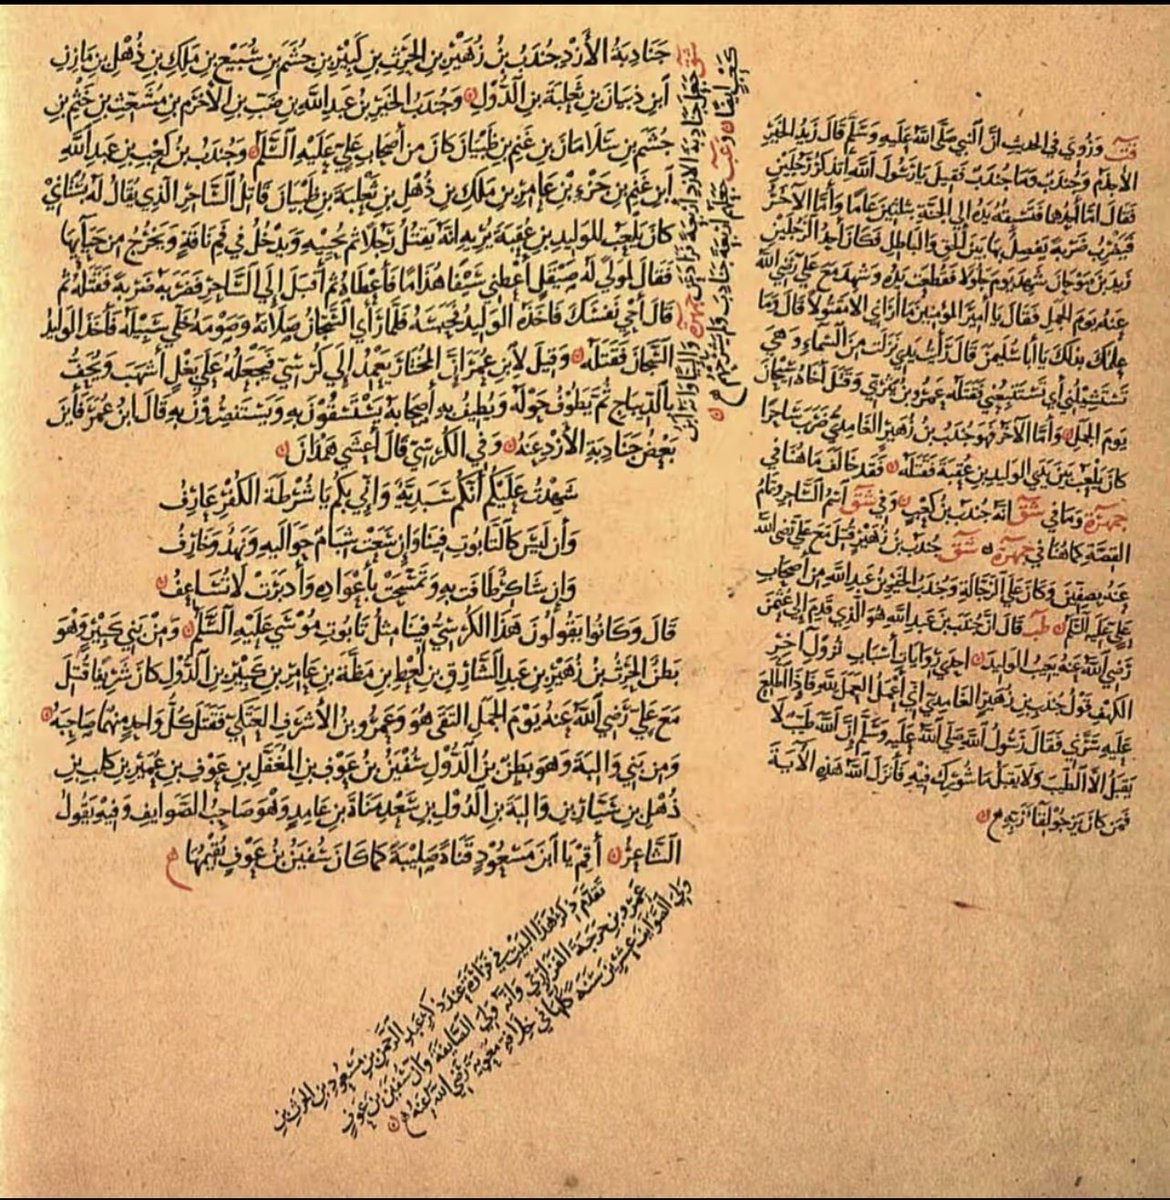 جنادبة الأزد جندب بن زهير بن الحرث بن كبير بن جشم بن سبيع بن ملك بن ذهل بن مازن
ابن ذبيان بن ثعلبة بن الدول وجندب الخير بن عبد الله بن ضب بن الأخرم بن مشعث بن خثيم بن
جشم بن سلامان بن غنم بن ظبيان كان من أصحاب علي عليه السلم وجندب بن كعب بن عبد الله
ابن غنم بن جزء بن عامر بن ملك بن ذهل بن ثعلبة بن ظبيان قاتل الساحر الذي يقال له بستاني
كان يلعب للوليد بن عقبة يريه أنه يقتل رجلا ثم يحييه ويدخل في فم ناقة ويخرج من حيائها
فقال لمولى له صيقل أعطني سيفا هذاما فأعطاه ثم أقبل إلى الساحر فضربه ضربة فقتله ثم
قال أحي نفسك فأخذه الوليد فحبسه فلما رأى السجان صلاته وصومه خلى سبيله فأخذ الوليد
السجان فقتله وقيل لابن عمر إن المختار يعمد إلى كرسي فيجعله على بغل أشهب ويحف
بالديباج ثم يطوف حوله ويطيف به أصحابه يستسقون به ويستنصرون به قال ابن عمر فأين
بعض جنادبة الأزد عنه وفي الكرسي قال أعشى همدان
شهدت عليكم أنكم سبدية وإني بكم يا شرطة الكفر عارف
وأن ليس كالتابوت فينا وإن سعت شبام حواليه ونهد وخارف
وإن شاكر طافت به وتمسحت بأعواده وأدبرت لا تساعف
قال وكانوا يقولون هذا الكرسي فينا مثل تابوت موسى عليه السلم ومن بني كبير وهو
بطن الحرث بن زهير بن عبد الشارق بن لعط بن مظة بن عامر بن كبير بن الدول كان شريفا قتل
مع علي رضي الله عنه يوم الجمل التقى هو وعمرو بن الأشرف العتكي فقتل كل واحد منهما صاحبه
ومن بني والبة وهو بطن بن الدول سفين بن عوف بن المغفل بن عوف بن عمير بن كلب بن
ذهل بن سيار بن والبة بن الدول بن سعد مناة بن غامد وهو صاحب الصوايف وفيه يقول
الشاعر أقم يا ابن مسعود قناة صليبة كما كان سفين بن عوف يقيمها
تقدم ذكر هذا البيت في فزارة عند ذكر عبد الرحمن بن مسعود بن الحرث بن
عمرو بن حرجة الفزاري وأنه ولي الصايفة وأن سفين بن عوف
ولي الصوايف عشرين سنة كلها في خلافة معوية رضي الله عنه
وروي في الحديث أن النبي صلى الله عليه وسلم قال زيد الخير
الأجذم وجندب وما جندب فقيل يا رسول الله أتذكر رجلين
فقال أما أحدهما فتسبقه يده إلى الجنة بثلثين عاما وأما الآخر
فيضرب ضربة يفصل بها بين الحق والباطل فكان أحد الرجلين
زيد بن صوحان شهد يوم جلولا فقطعت يده وشهد مع علي رضي الله
عنه يوم الجمل فقال يا أمير المؤمنين ما أراني إلا مقتولا قال وما
علمك بذلك يا أبا سليمن قال رأيت يدي نزلت من السماء وهي
تستشيلني أي تستتبعني فقتله عمرو بن يثربي وقتل أخاه سيحان
يوم الجمل وأما الآخر فهو جندب بن زهير الغامدي ضرب ساحرا
كان يلعب بين يدي الوليد بن عقبة فقتله فقد خالف ما هنا في
جمهرة وما في شق أنه جندب بن كعب وفي شق اسم الساحر وتمام
القصة كما هنا في جمهرة شق جندب بن زهير قتل مع علي رضي الله
عنه بصفين وكان على الرجالة وجندب الخير بن عبد الله من أصحاب
علي عليه السلم طب قال إن جندب بن عبد الله هو الذي قدم إلى عثمن
رضي الله عنه يعيب الوليد إحدى روايات أسباب نزول آخر
الكهف قول جندب بن زهير الغامدي إني أعمل العمل لله فإذا اطلع
عليه سرني فقال رسول الله صلى الله عليه وسلم إن الله طيب لا
يقبل إلا الطيب ولا يقبل ما شورك فيه فأنزل الله هذه الآية
فمن كان يرجو لقا ربه